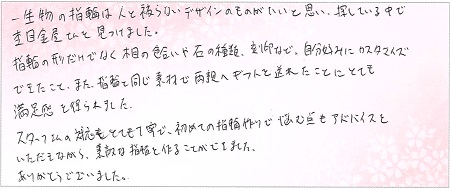 一生物の指輪は人と被らないデザインのものがいいと思い、探している中で
杢目金屋さんを見つけました。
指輪の形だけでなく木目の色合いや石の種類、刻印など、自分好みにカスタマイズ
できたこと、また、指輪と同じ素材で両親へギフトを送れたことにとても
満足感を得られました。
スタッフさんの対応もとても丁寧で、初めての指輪作りで悩む点もアドバイスを
いただきながら、素敵な指輪を作ることができました。
ありがとうございました。